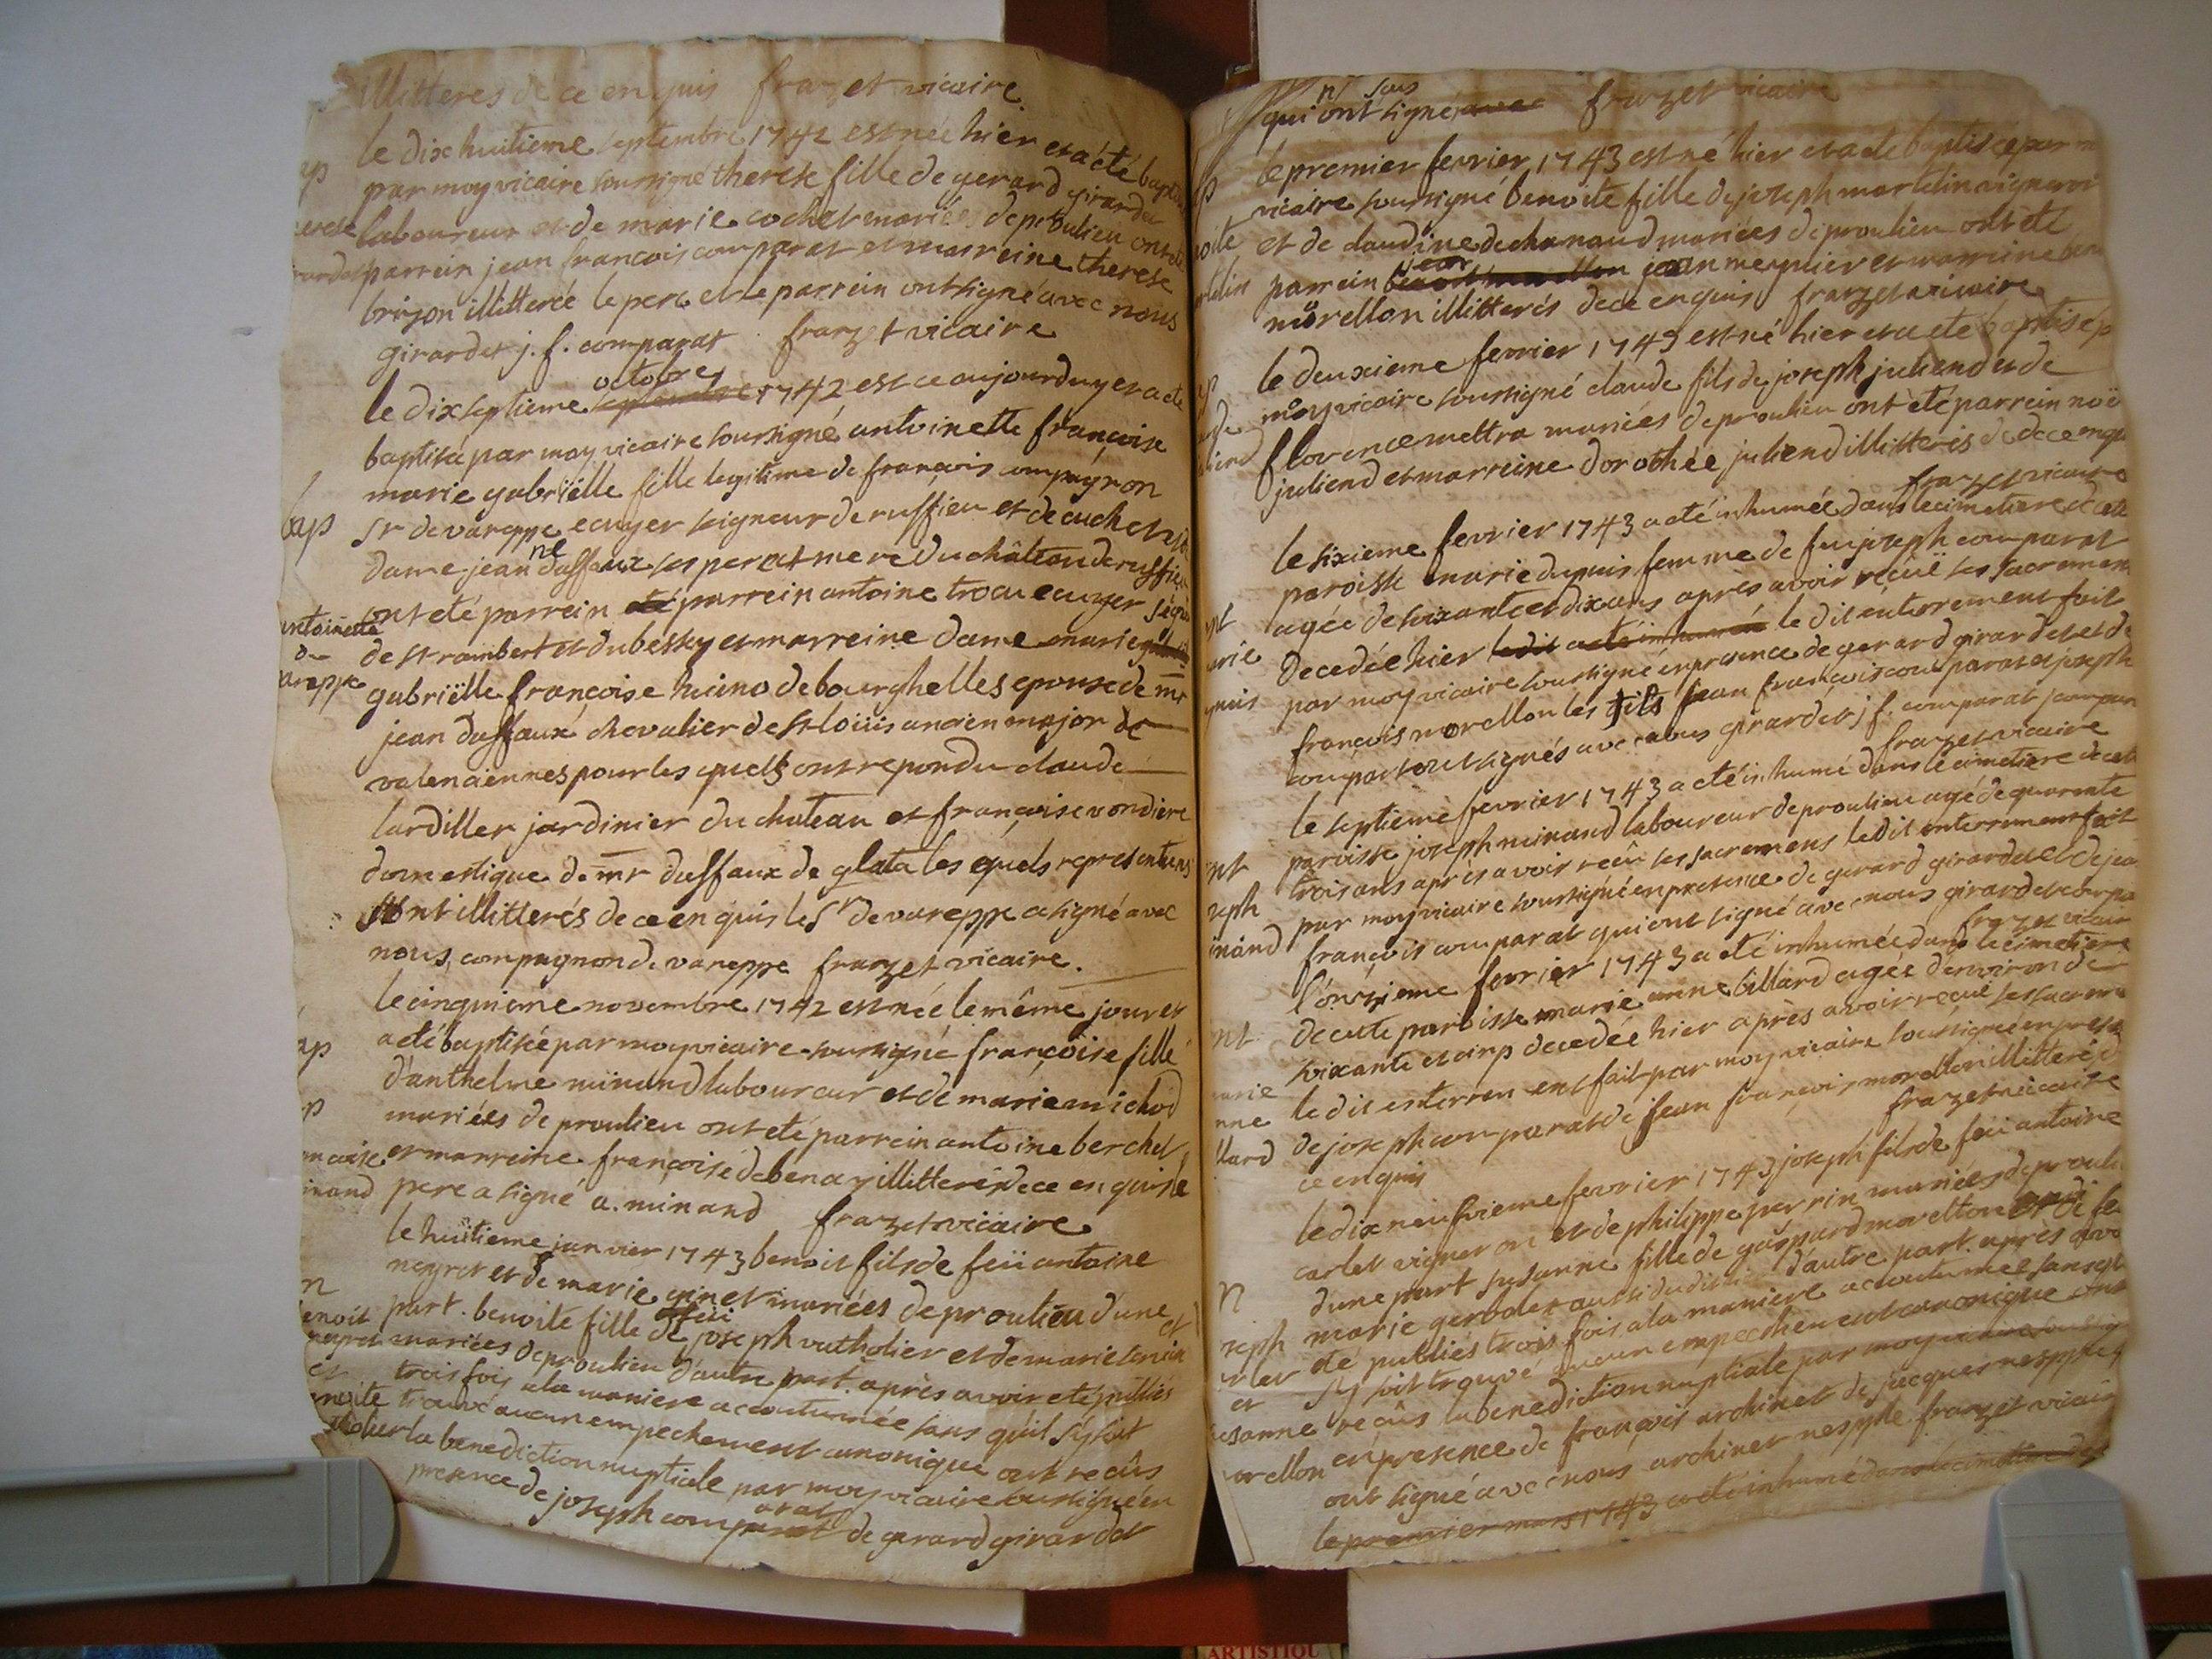 illitteres de ce enquis frazet vicaire
le dix huitieme septembre 1742 est née hier et a été bapt
bap
par moy vicaire soussigné therese fille de gerard girardet
laboureur et de marie cochet mariées de proulieu ont eté
parrein jean francois comparat et marreine therese
brizon illitterée le pere et le parrein ont signé avec nous
girardet j. f. comparat frazet vicaire
octobre
le dix septieme septembre 1742 est ce aujourduy et a ete
baptisée par moy vicaire soussigné antoinette françoise
marie gabriëlle fille legitime de françois compagnon
bap
sr de vareppe ecuyer seigneur de ruffieu et de cuchet et de
dame jeanne duffaux ses pere et mere du château de ruffieu
ont eté parrein été parrein antoine trocu ecuyer seigr
antoinette
de
vareppe
de st rambert et du bessey et marreine dame marie
gabriëlle françoise huino de bourghelles epouse de mr
jean duffaux chevalier de st loüis ancien major de
valenciennes pour les quels ont repondu claude
lardiller jardinier du chateau et françoise vondiere
domestique de mr duffaux de glata les quels representans
sont illitterés de ce enquis le sr de vareppe a signé avec
nous compagnon de vareppe frazet vicaire.
le cinquieme novembre 1742 est née le même jour et
bap
a eté baptisée par moy vicaire soussigné françoise fille
d'anthelme minand laboureur et de marie michod
mariées de proulieu ont eté parrein antoine berchet
et marreine françoise debenay illitterés de ce enquis le
pere a signé a. minand frazet vicaire
le huitieme janvier 1743 benoit fils de feü antoine
neyret et de marie ginet mariées de proulieu d'une
feü
part. benoite fille de joseph vatholier et de marie
mariées de proulieu d'autre part. après avoir eté publiés
trois fois a la maniere accoutumée sans qu'il s'y soit
trouvé aucun empechement canonique ont reçûs
la benediction nuptiale par moy vicaire soussigné en
presence de joseph comparat de gerard girardet
ni sous
qui ont signé avec frazet vicaire
le premier fevrier 1743 est né hier et a ete baptisée par m
vicaire soussigné benoite fille de joseph martelin vigneron
et de claudine dechanaud mariées de proulieu ont eté
parrein jean meynier et marreine ben
morellon illitterés de ce enquis frazet vicaire
le deuxieme fevrier 1743 est né hier et a eté baptisé p
moy vicaire soussigné claude fils de joseph juliend et de
florence mettra mariées de proulieu ont été parrein noë
juliend et marreine dorothée juliend illitterés de ce enqu
frazet vicaire
le sixieme fevrier 1743 a eté inhumée dans le cimetiere de cette
paroisse marie dupuis femme de feu joseph comparat
agée de soixante et dix ans après avoir reçüe les sacremens
decedée hier ledit a eté inhumée le dit enterrement fait
par moy vicaire soussigné en presence de gerard girardet et de
françois morellon les fils jean françois comparat et joseph
comparat ont signés avec nous girardet j f. comparat j compar
frazet vicaire
le septieme fevrier 1743 a eté inhumé dans le cimetiere de cet
paroisse joseph minand laboureur de proulieu agé de quarante
trois ans après avoir reçû les sacremens le dit enterrement fait
par moy vicaire soussigné en presence de gerard girardet et de jea
françois comparat qui ont signé avec nous girardet compa
frazet vicair
l'onzieme fevrier 1743 a eté inhumée dans le cimetiere
de cette paroisse marie anne billard agée d'environ de
soixante et cinq decedée hier après avoir reçüe les sacrem
le dit enterrement fait par moy vicaire soussigné en prese
de joseph comparat de jean françois morellon illitteré d
ce enquis frazet vicaire
le dix neufvieme fevrier 1743 joseph fils de feü antoine
carlet vigneron et de philippe perrin mariées de prouli
d'une part susanne fille de gaspard morellon et de fe
marie gerbolet aussi du dit lieu d'autre part. après avo
eté publiés trois fois a la maniere accoutumée sans qu'il
s'y soit trouvé aucun empechement canonique ont
reçûs la benediction nuptiale par moy vicaire soussig
en presence de françois archinet de jacques nespple q
ont signé avec nous archinet nespple frazet vicair
le premier mars 1743 a eté inhumé dans le cimetiere de